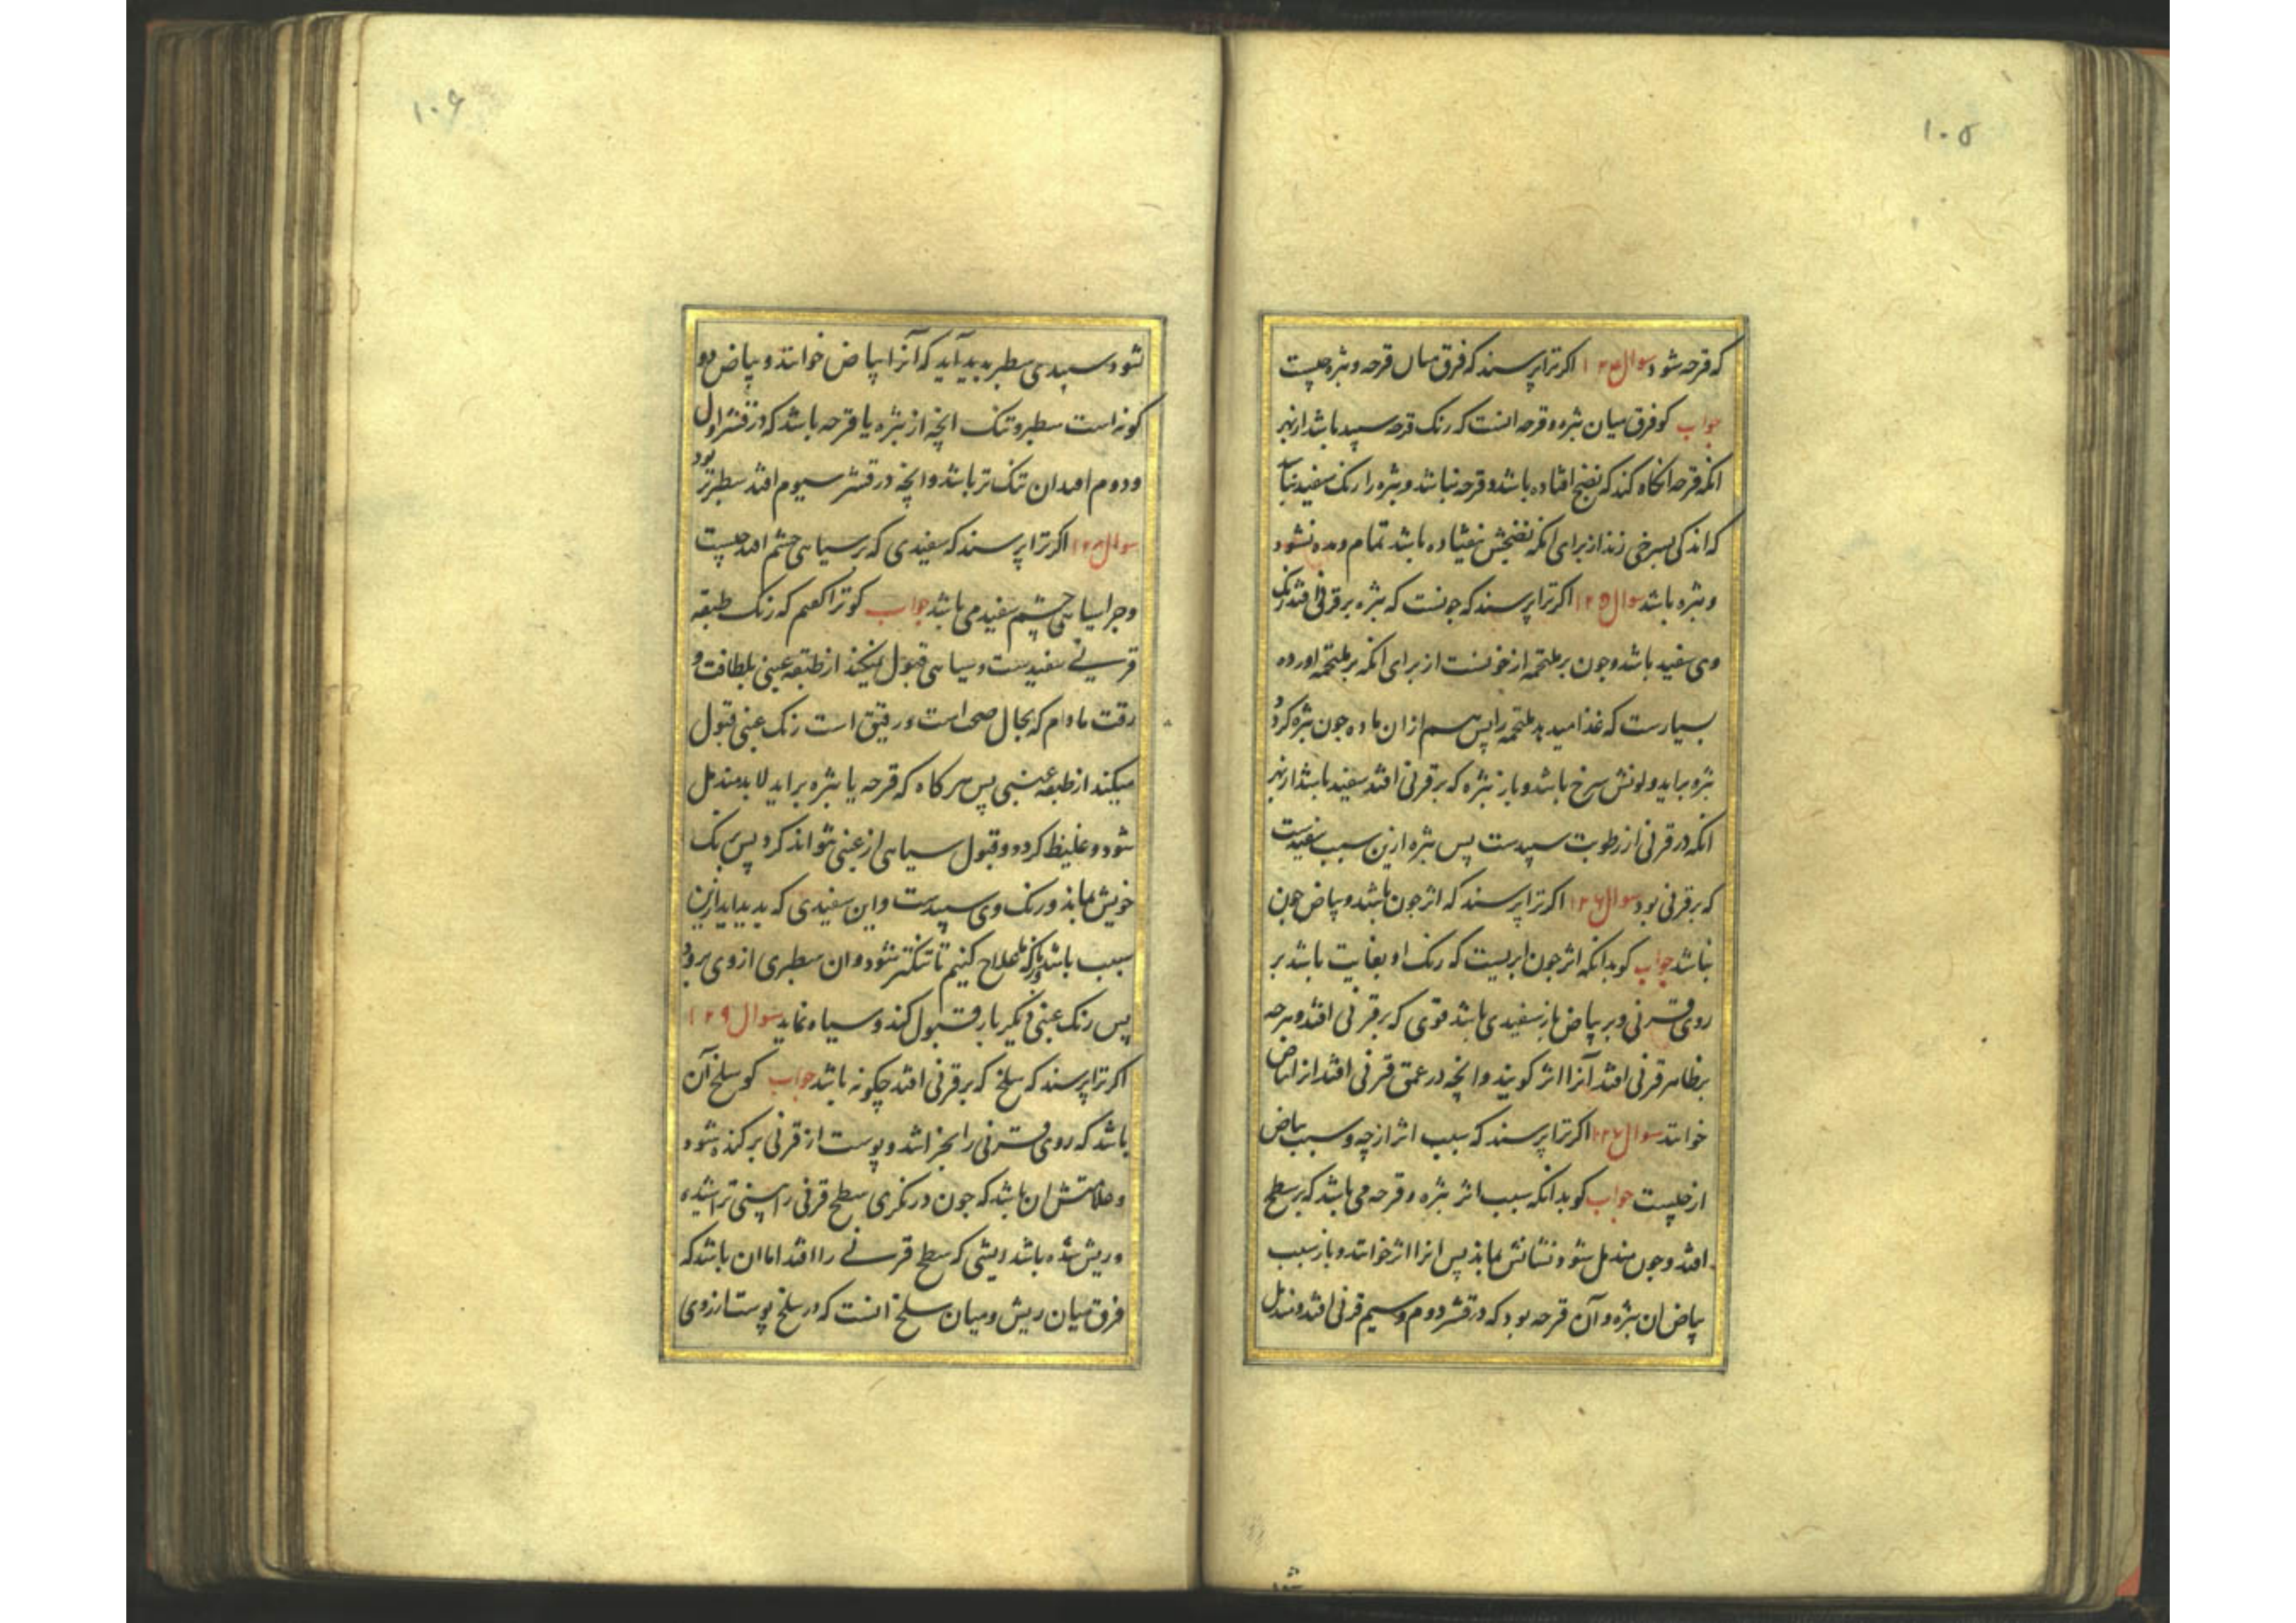 ۱۰۵
که قرحه شود سوال ۱۲۴ اکر ترا پرسند که فرق میان قرحه و بثره چیست
جواب کو فرق میان بثره و قرحه انست که رنک قرحه سپید باشد از بهر
انکه قرحه انکاه کند که نضج افتاده باشد و قرحه نباشد و بثره را رنک سفید نباشد
که اندکی بسرخی زند از برای انکه نضجش نیفتاده باشد تمام و مده نشود
و بثره باشد سوال ۱۲۵ اکر ترا پرسند که چونست که بثره بر قرنی افتد رنک
وی سفید باشد و چون بر ملتحمه از خونست از برای انکه بر ملتحمه اورده
بسیارست که غذا میدهد ملتحمه را پس هم از ان ماده چون بثره کردد
بثره براید و لونش سرخ باشد و باز بثره که بر قرنی افتد سفید باشد از بهر
انکه در قرنی از رطوبت سپیدست پس بثره ازین سبب سفیدست
که بر قرنی بود سوال ۱۲۶ اکر ترا پرسند که اثر چون باشد و بیاض چون
باشد جواب کو بدانکه اثر چون ابریست که رنک او بغایت باشد بر
روی قرنی و بر بیاض باز سفیدی باشد قوی که بر قرنی افتد و هرچه
بر ظاهر قرنی افتد آنرا اثر کویند و انچه در عمق قرنی افتد انرا بیاض
خوانند سوال ۱۲۷ اکر ترا پرسند که سبب اثر از چه و سبب بیاض
از چیست جواب کو بدانکه سبب اثر بثره و قرحه می باشد که بر سطح
افتد و چون مندمل شود نشانش بماند پس انرا اثر خوانند و باز سبب
بیاض ان بثره و آن قرحه بود که در قشر دوم و سیم قرنی افتد و مندمل
۱۰۶
شود سپیدی سطبر پدید آید که آنرا بیاض خوانند و بیاض دو
کونه است سطبر و تنک انچه از بثره یا قرحه باشد که در قشر اول
و دوم افتد ان تنک تر باشد و انچه در قشر سیوم افتد سطبرتر بود
سوال ۱۲۸ اکر ترا پرسند که سفیدی که بر سیاهی چشم افتد چیست
و چرا سیاهی چشم سفید می باشد جواب کو ترا کفتم که رنک طبقه
قرنی سفیدست و سیاهی قبول میکند از طبقه عنبی بلطافت و
رقت مادام که بحال صحت است و رقیق است رنک عنبی قبول
میکند از طبقه عنبی پس هرکاه که قرحه یا بثره براید لابد مندمل
شود و غلیظ کردد و قبول سیاهی از عنبی نتواند کرد پس برنک
خویش بماند و رنک وی سپیدست و این سفیدی که پدید اید ازین
سبب باشد علاج کنیم تا تنکتر شود و ان سطبری از وی برود
پس رنک عنبی دیکر بار قبول کند و سیاه نماید سوال ۱۲۹
اکر ترا پرسند که سلخ که بر قرنی افتد چکونه باشد جواب کو سلخ آن
باشد که روی قرنی را بخراشد و پوست از قرنی برکنده شود
و علامتش ان باشد که چون درنکری سطح قرنی را بینی تراشیده
و ریش شده باشد ریشی که سطح قرنی را افتد اما ان باشد که
فرق میان ریش و میان سلخ انست که در سلخ پوست از روی